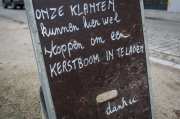 ONZE KLANTEN
kunnen hier wel
stoppen om een
KERSTBOOM IN TE LADEN
dank u